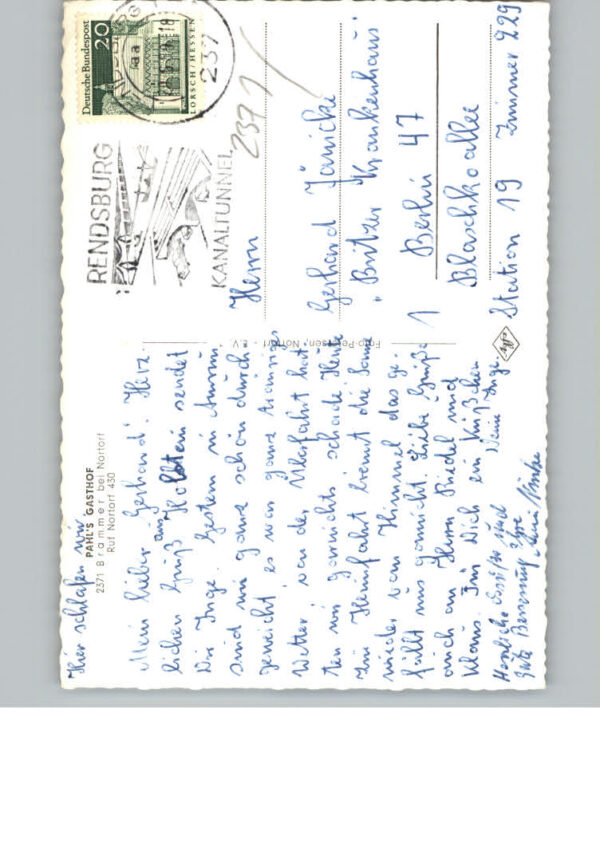 Hier schlafen wir
PAHL'S GASTHOF
2371 Brammer bei Nortorf
Ruf Nortorf 430
Mein lieber Gerhard! Herz-
lichen Gruß aus Holstein sendet
Dir Inge. Gestern in Amrum
sind wir ganz schön durch
geweicht es war ganz trauriges
Wetter, von der Überfahrt hat-
ten wir garnichts schade. Heute
zur Heimfahrt brennt die Sonne
wieder vom Himmel das ge-
fällt uns garnicht. Liebe Grüße
auch an Herrn Riedel und
Klaus. Für Dich ein Küßchen
Deine Inge.
Herzliche Grüße und
gute Besserung Ihre
Foto-Petersen, Nortorf
Agfa
Deutsche Bundespost
20
LORSCH/HESSEN
237
aa
RENDSBURG
KANALTUNNEL
2371
Herrn
Gerhard Jänicke
"Britzer Krankenhaus"
1 Berlin 47
Blaschkoallee
Station 19 Zimmer 229